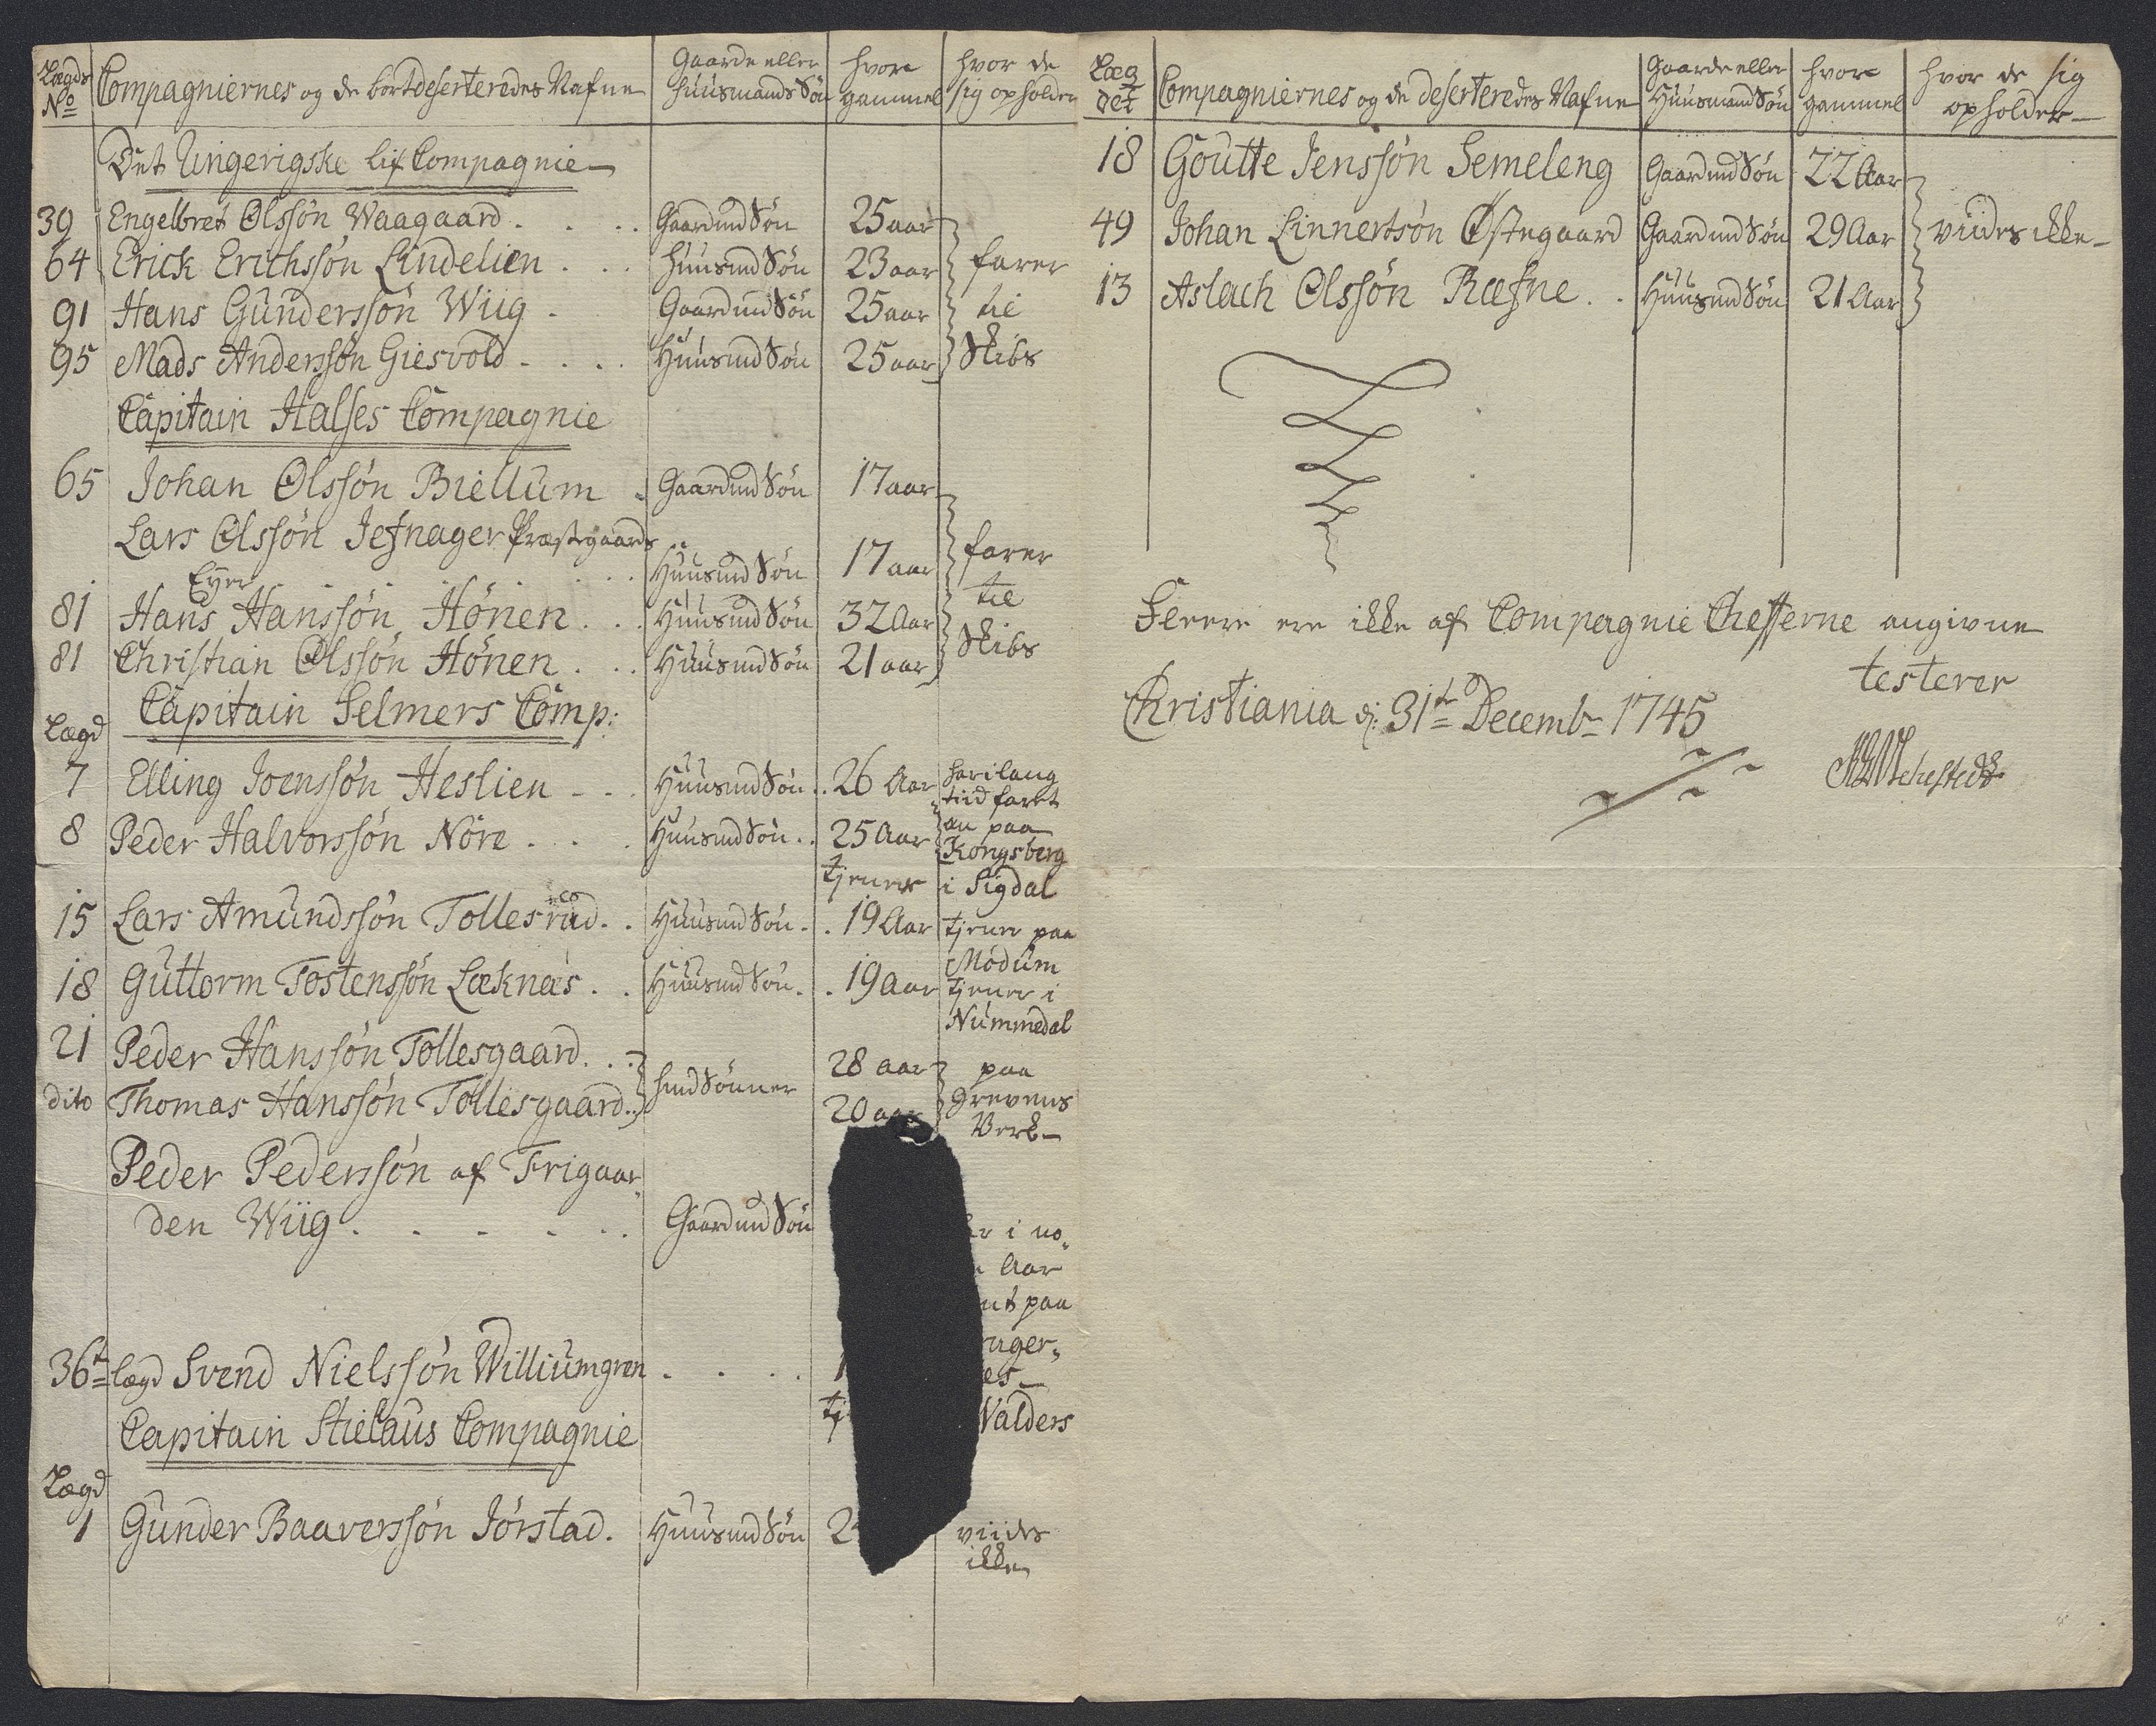 Lægds No Compagniernes og de bortdeserteredes Nafne Gaarde eller Huusmands Søn hvor gammel hvor de sig opholder
Det Ringerigske Lif Compagnie
39 Engelbret Olssøn Waagaard . . . Gaardmd Søn 25 aar
64 Erick Erichssøn Lindelien . . . Huusmd Søn 23 aar farer
91 Hans Gunderssøn Wiig . Gaardmd Søn 25 aar til
95 Mads Anderssøn Giesvold . . . . Huusmd Søn 25 aar Skibs
Capitain Halses Compagnie
65 Johan Olssøn Biellum . Gaardmd Søn 17 aar
Lars Olssøn Jefnager Præstegaards
Eyer . . . . . Huusmd Søn 17 aar farer
81 Hans Hanssøn Hönen . . . Huusmd Søn 32 Aar til
81 Christian Olssøn Hönen . . . Huusmd Søn 21 aar Skibs
Capitain Selmers Comp:
Lægd
7 Elling Joenssøn Heslien - - . Huusmd Søn . . 26 Aar har i lang
tiid faret
8 Peder Halvorssøn Nöre . . . . Huusmd Søn . . 25 Aar en paa
Kongsberg
tjener i Sigdal
15 Lars Amundssøn Tollesrud . . Huusmd Søn . . 19 Aar tjener paa
Modum
18 Guttorm Tostenssøn Læknæs . . Huusmd Søn . . 19 Aar tjener i
Nummedal
21 Peder Hanssøn Tollesgaard . . 28 aar paa
hmd Sönner Grevens
dito Thomas Hanssøn Tollesgaard . . 20 aar Verk
Peder Pederssøn af Frigaar-
den Wiig . . . . . . Gaardmd Søn i no-
Aar
paa
36te lægd Svend Nielssøn Williumgren . . . .
Valders
Capitain Stielaus Compagnie
Lægd
1 Gunder Baaverssøn Jörstad . Huusmd Søn 2 viides
ikke
Læg det Compagniernes og de deserteredes Nafne Gaarde eller Huusmand Søn hvor gammel hvor de sig opholder
18 Goutte Jenssøn Semeleng Gaardmd Søn 22 Aar
49 Johan Linnertsøn Östegaard Gaardmd Søn 29 Aar viides ikke
13 Aslach Olssøn Ræfne . . Huusmd Søn 21 Aar
Fleere ere ikke af Compagnie Chefferne angivne
testerer
Christiania d: 31te Decembr 1745